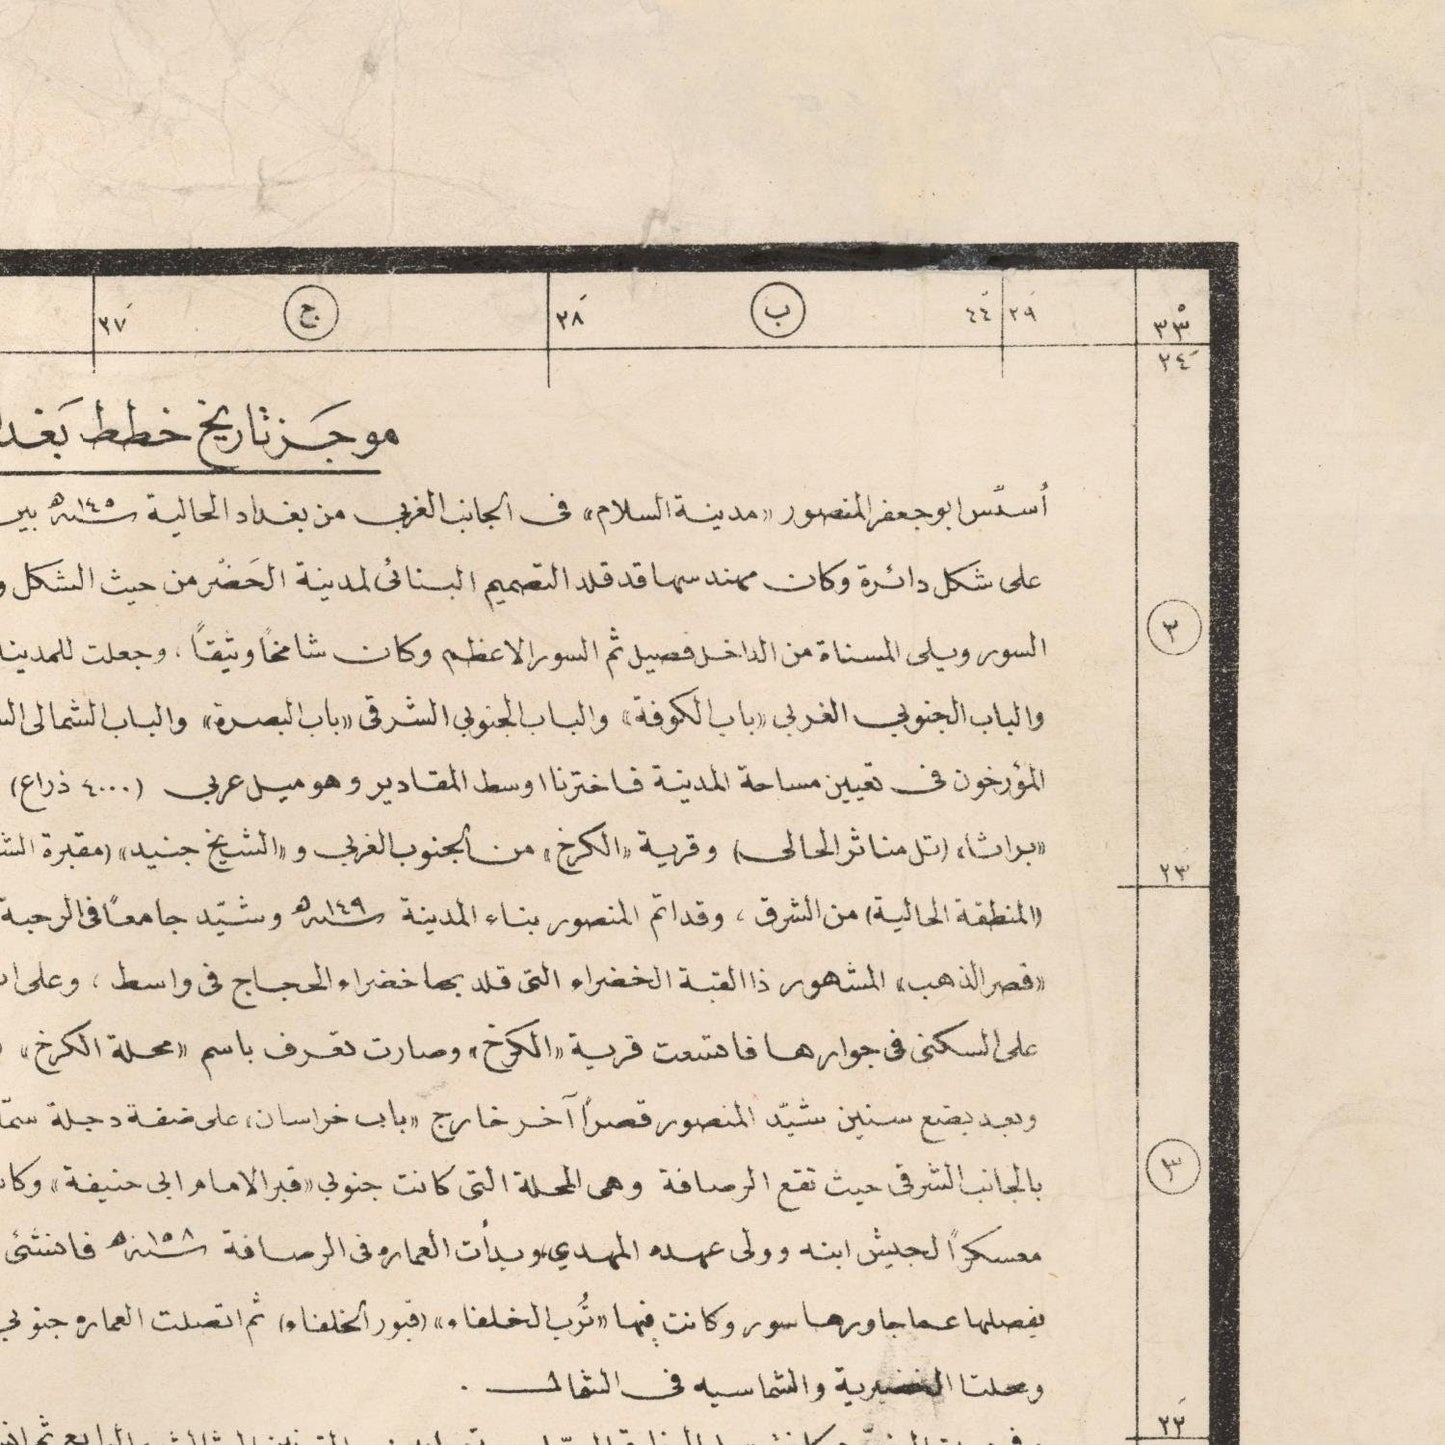 ٣٣° ٢٩ ٤٤ ب ٢٨ ج ٢٧
٢٤
موجز تاريخ خطط بغد
أسّس ابو جعفر المنصور «مدينة السلام» في الجانب الغربي من بغداد الحالية سنة ١٤٥ هـ بين
على شكل دائرة وكان مهندسها قد قلد التصميم البنائي لمدينة الحَضْر من حيث الشكل و
٢
السور ويلي المسناة من الداخل فصيل ثم السور الاعظم وكان شامخاً وثيقاً، وجعلت للمدينة
والباب الجنوبي الغربي «باب الكوفة» والباب الجنوبي الشرقي «باب البصرة» والباب الشمالي
المؤرخون في تعيين مساحة المدينة فاخترنا اوسط المقادير وهو ميل عربي (٤٠٠٠ ذراع)
«براثا» (تل مناثر الحالي) وقرية «الكرخ» من الجنوب الغربي و«الشيخ جنيد» (مقبرة
٢٣
(المنطقة الحالية) من الشرق، وقد اتم المنصور بناء المدينة سنة ١٤٩ هـ وشيّد جامعاً في الرحبة
«قصر الذهب» المشهور ذا القبة الخضراء التي قلد بها خضراء الحجاج في واسط، وعلى
على السكنى في جوارها فاتسعت قرية «الكرخ» وصارت تعرف باسم «محلة الكرخ»
وبعد بضع سنين شيّد المنصور قصراً آخر خارج «باب خراسان» على ضفة دجلة
بالجانب الشرقي حيث تقع الرصافة وهي المحلة التي كانت جنوبي «قبر الامام ابي حنيفة»
٣
معسكراً لجيش ابنه وولي عهده المهدي وبدأت العماره في الرصافة سنة ١٥٨ هـ فانشئ
يفصلها عما جاورها سور وكانت فيها «تُرب الخلفاء» (قبور الخلفاء) ثم اتصلت العماره جنوبي
ومحلتا الخضيرية والشماسيه في الشمال .
٢٢